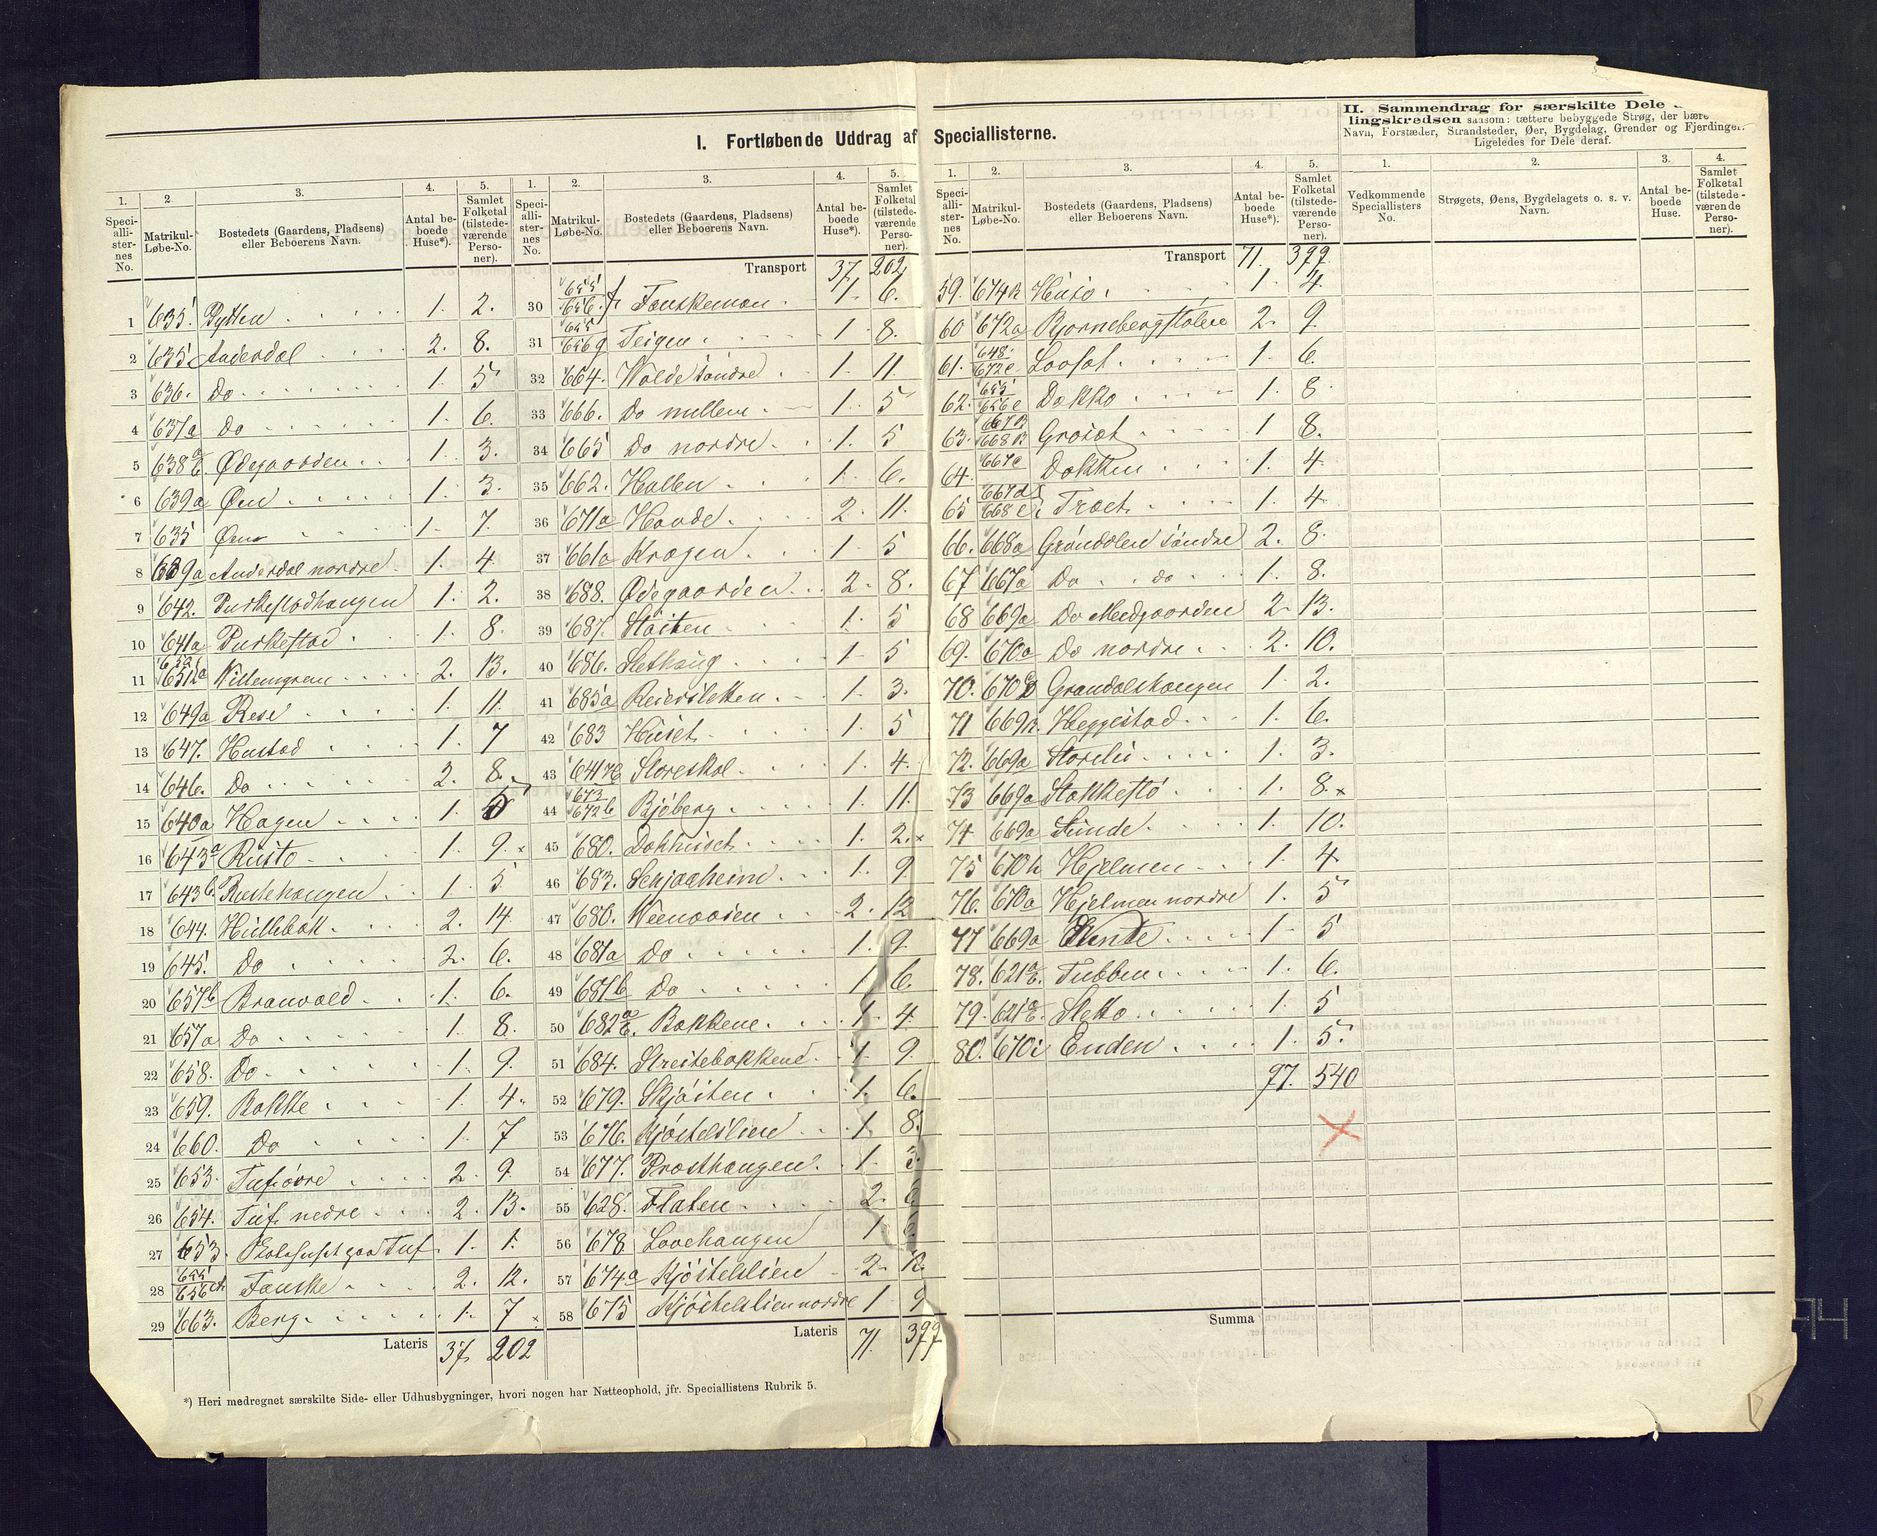 I. Fortløbende Uddrag af Speciallisterne.
II. Sammendrag for særskilte Dele
lingskredsen saasom: tættere bebyggede Strøg, der bære
Navn, Forstæder, Strandsteder, Øer, Bygdelag, Grender og Fjerdinger.
Ligeledes for Dele deraf.
1. 2 3. 4. 5.
Speciallisternes No. Matrikul-Løbe-No. Bostedets (Gaardens, Pladsens) eller Beboerens Navn. Antal beboede Huse*). Samlet Folketal (tilstedeværende Personer).
1 635. Pytten 1. 2.
2 635 Anderdal 2. 8.
3 636. Do 1. 5
4 637a Do 1. 6.
5 638a/b Ødegaarden 1. 3.
6 639a Øen 1. 3.
7 635 Øen 1. 7.
8 639a Anderdal nordre 1. 4.
9 642. Purkestadhaugen 1. 2.
10 641a Purkestad 1. 8.
11 651a 2. 13.
12 649a Rese 1. 11.
13 647. Hustad 1. 7
14 646. Do 2. 8.
15 640a Hagen 1. 5
16 643a Rusto 1. 9. x
17 643b Rustehaugen 1. 5
18 644. Hullebak 2. 14.
19 645. Do 2. 6.
20 657b Branvold 1. 6.
21 657a Do 1. 8.
22 658. Do 1. 9.
23 659. Bakke 1. 4.
24 660. Do 1. 7
25 653. Tuf øvre 2. 9.
26 654. Tuf nedre 2. 13.
27 653. Skolehuset paa Tuf 1. 1.
28 655/656 Fauske 2. 12.
29 663. Berg 1. 7 x
Lateris 37 202
1. 2. 3. 4. 5.
Speciallisternes No. Matrikul-Løbe-No. Bostedets (Gaardens, Pladsens) eller Beboerens Navn. Antal beboede Huse*). Samlet Folketal (tilstedeværende Personer).
Transport 37 202
30 655/656f Fauskemoen 1 6.
31 655/656g Teigen 1 8.
32 664. Wolde søndre 1. 11
33 666. Do mellem 1. 5
34 665 Do nordre 1. 5
35 662. Hallen 1. 6.
36 671a Hovde 2. 11.
37 661a Kragen 1. 5
38 688. Ødegaarden 2. 8.
39 687. Støiten 1. 5
40 686. Slethaug 1. 5
41 685a Reiersletten 1. 3.
42 683 Huset 1. 5
43 Storeskol 1. 4.
44 673/672b Bjøberg 1. 11.
45 680. Dokhuset 1. 2. x
46 683. Senjaaheim 1. 9
47 680. Weenaasen 2. 12
48 681a Do 1. 9.
49 681b Do 1 6.
50 682a/b Bakkene 1. 4.
51 684. Streitebakkene 1. 9.
52 679. Skjøiten 1. 6.
53 676. Kjøstelslien 1. 8.
54 677. Præsthaugen 1. 3.
55 628. Flaten 2. 6
56 678 Lovehaugen 1 6.
57 674a Kjøstelslien 2. 12.
58 675 Kjøstelslien nordre 1 9
Lateris 71. 399
1. 2. 3. 4. 5.
Speciallisternes No. Matrikul-Løbe-No. Bostedets (Gaardens, Pladsens) eller Beboerens Navn. Antal beboede Huse*). Samlet Folketal (tilstedeværende Personer).
Transport 71. 399
59. Huso 1. 4.
60 672a Bjørnebergstølen 2. 9.
61. 648/672c Loosat 1. 6.
62. 655/656e Dokko 1. 8.
63. 667B/668B Grøset 1 8.
64. 667c Dokken 1. 4
65 667d/668c Træet 1. 4
66. 668a Grøndalen søndre 2. 8.
67 667a Do do 1. 8.
68 669a Do Medgaarden 2. 13.
69. 670a Do nordre 2. 10.
70. 670 Grøndalshaugen 1 2.
71 669 Heggestad 1. 6.
72. 669a Storelii 1. 3.
73 669a Stakkestø 1. 8. x
74 669a Sunde 1. 10.
75 670h Hjelmen 1. 4
76. 670a Hjelmen nordre 1. 5
77 669a Sunde 1. 5
78. 621 Tubben 1. 6.
79. 621 Sletto 1. 5
80. 670i Enden 1. 5.
97. 540
Summa
1. 2. 3. 4.
Vedkommende Speciallisters No. Strøgets, Øens, Bygdelagets o. s. v. Navn. Antal beboede Huse. Samlet Folketal (tilstedeværende Personer).
*) Heri medregnet særskilte Side- eller Udhusbygninger, hvori nogen har Natteophold, jfr. Speciallistens Rubrik 5.